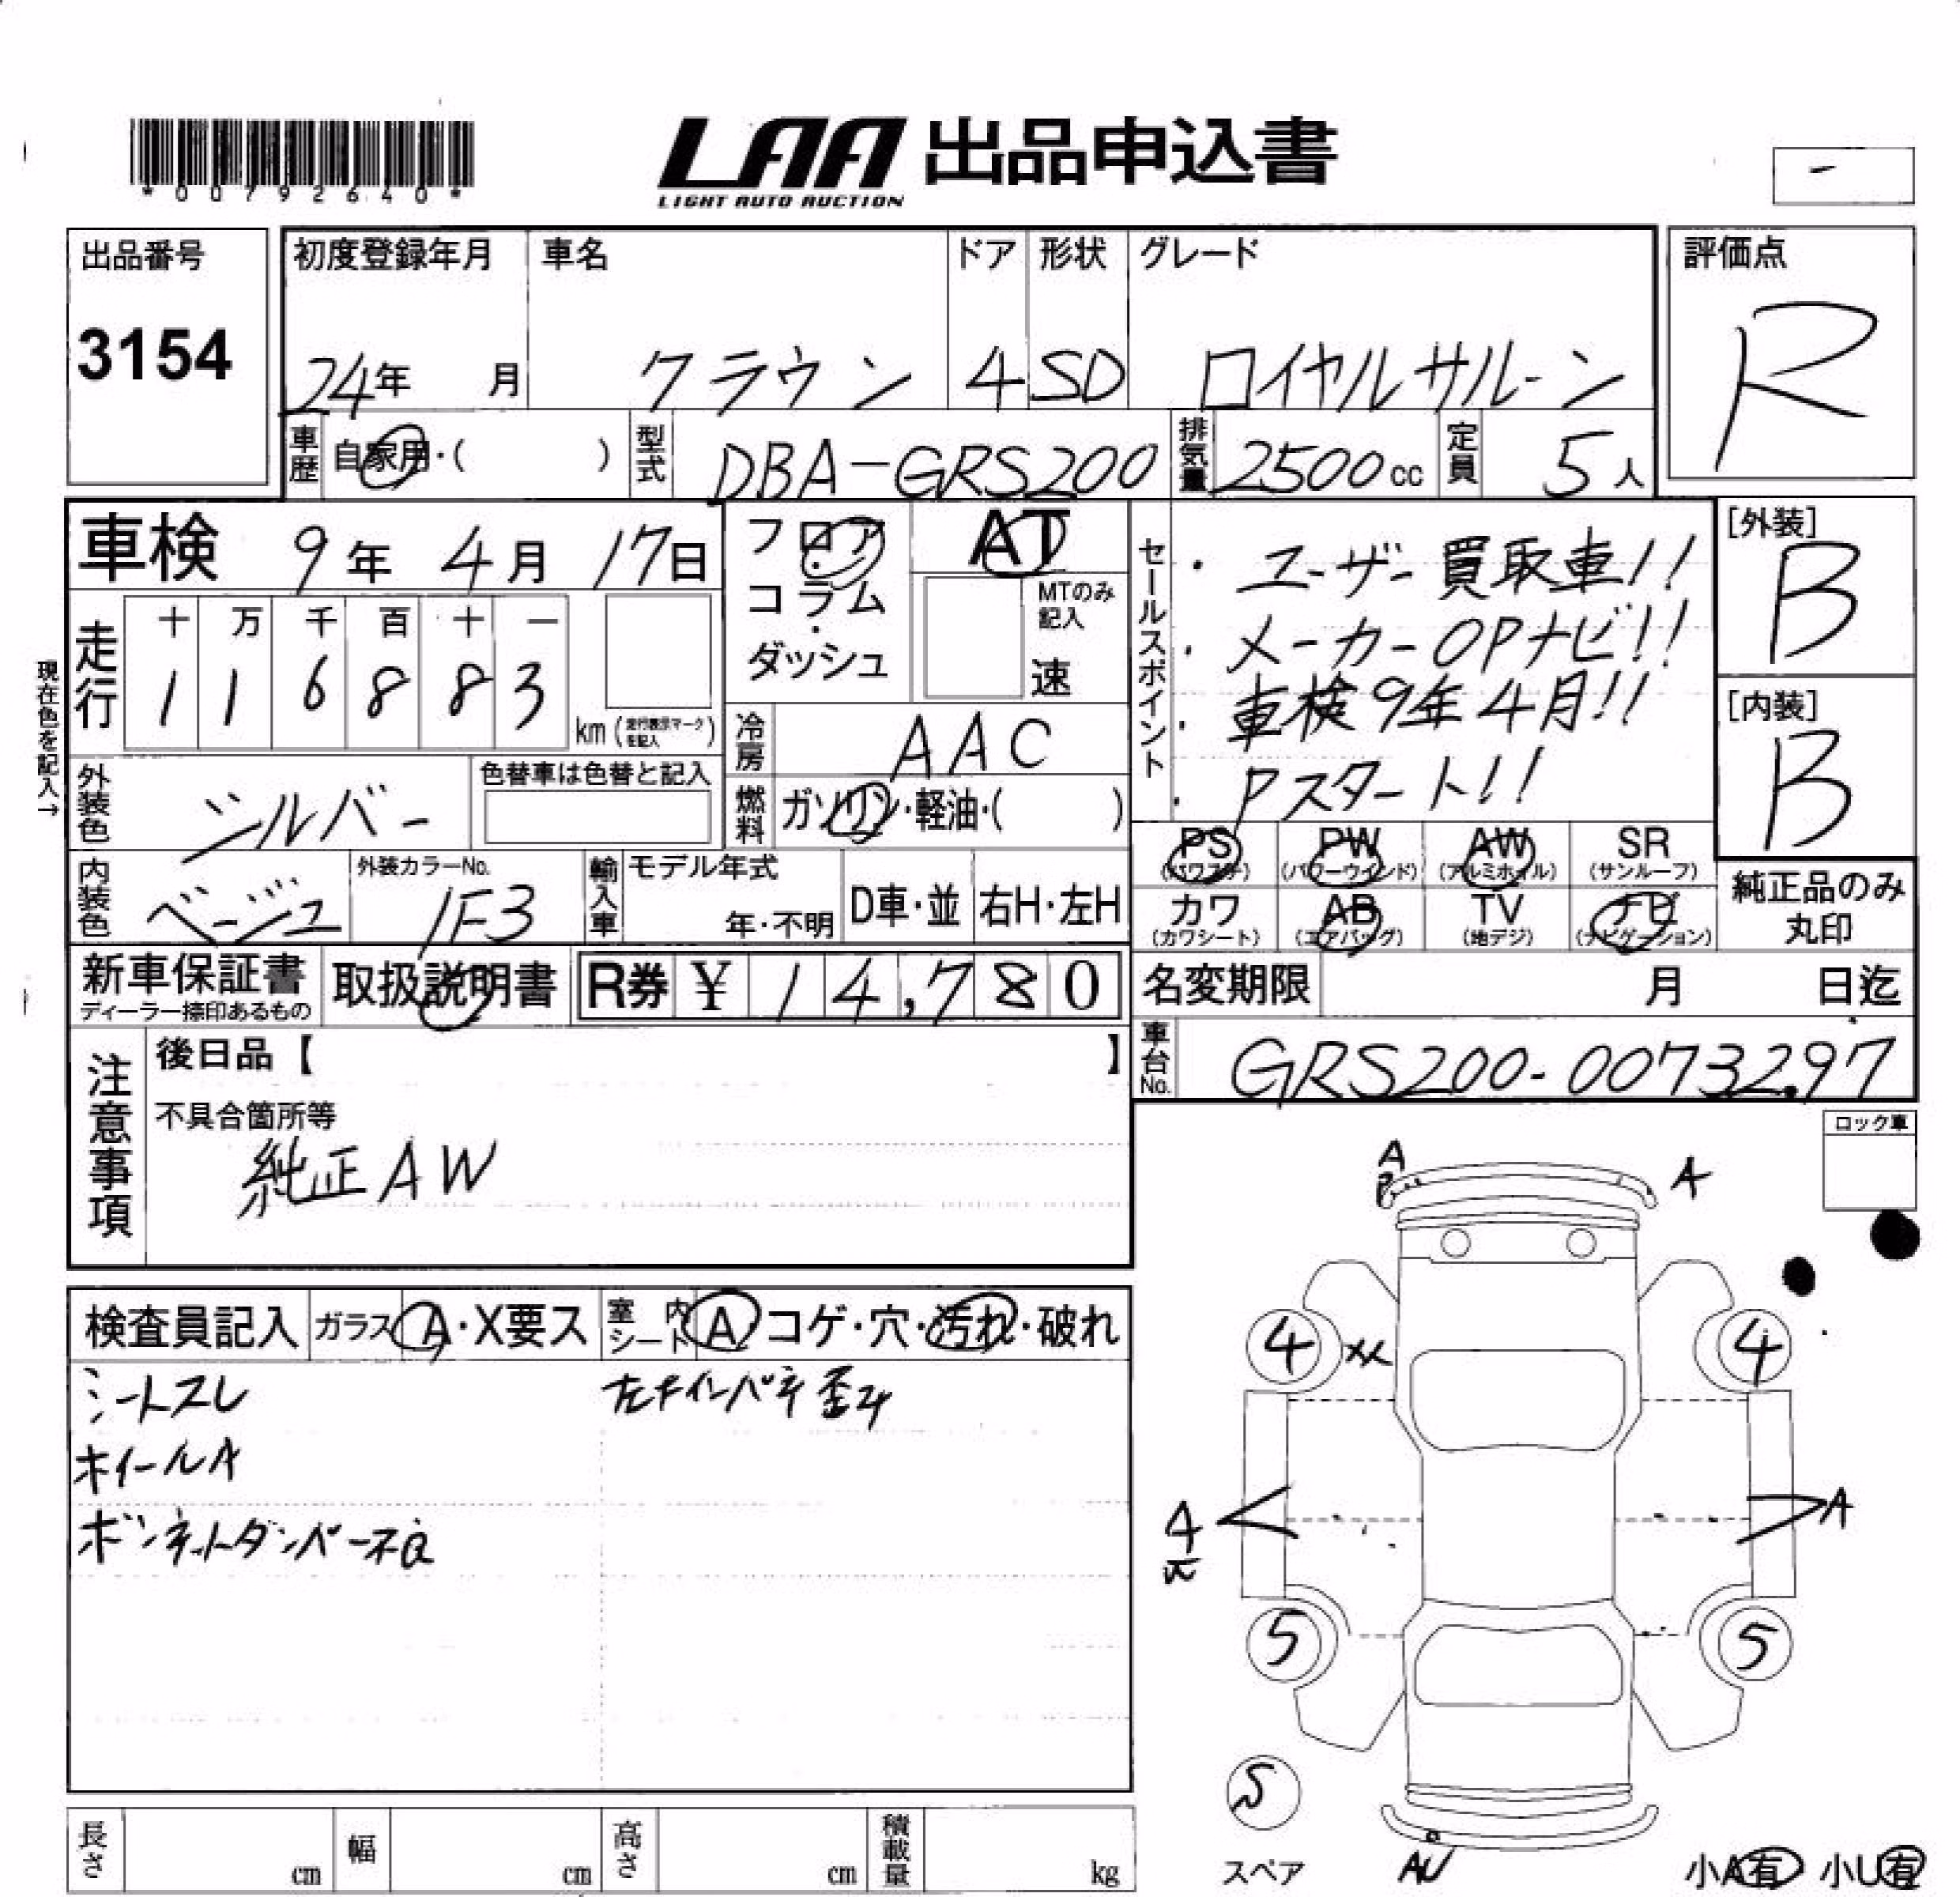 *00792640*
LAA 出品申込書
LIGHT AUTO AUCTION
-
出品番号
3154
初度登録年月 車名 ドア 形状 グレード
24年 月 クラウン 4 SD ロイヤルサルーン
評価点
R
車歴 自家用・( ) 型式 DBA-GRS200 排気量 2500cc 定員 5人
車検 9年 4月 17日
フロア・コラム・ダッシュ
AT
MTのみ記入
速
セールスポイント
・ユーザー買取車!!
・メーカーOPナビ!!
・車検9年4月!!
・Pスタート!!
[外装]
B
[内装]
B
現在色を記入→
走行 十 万 千 百 十 一
1 1 6 8 8 3
km (走行表示マークを記入)
冷房 AAC
外装色 シルバー 色替車は色替と記入
燃料 ガソリン・軽油・( )
PS (パワステ) PW (パワーウインド) AW (アルミホイル) SR (サンルーフ)
カワ (カワシート) AB (エアバッグ) TV (地デジ) ナビ (ナビゲーション)
純正品のみ丸印
内装色 ベージュ 外装カラーNo. 1F3 輸入車 モデル年式 年・不明 D車・並 右H・左H
新車保証書 ディーラー捺印あるもの 取扱説明書 R券 ¥ 14,780
名変期限 月 日迄
車台No. GRS200-0073297
注意事項
後日品【 】
不具合箇所等
純正AW
ロック車
検査員記入 ガラス A・X要ス 室内シート A コゲ・穴・汚れ・破れ
シートスレ 左右インパネ歪み
ホイールA
ボンネットダンパー不良
A
A
4 XX 4
A
A
5 5
スペア
AU
小A有 小U有
長さ cm 幅 cm 高さ cm 積載量 kg